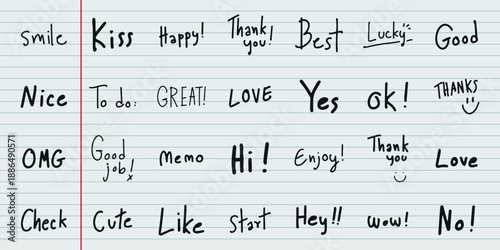 Smile Kiss Happy! Thank you! Best Lucky Good
Nice To do: GREAT! LOVE Yes OK! THANKS
OMG Good job! Memo Hi! Enjoy! Thank you Love
Check Cute Like Start Hey!! Wow! No!
Adobe Stock | #1886490571